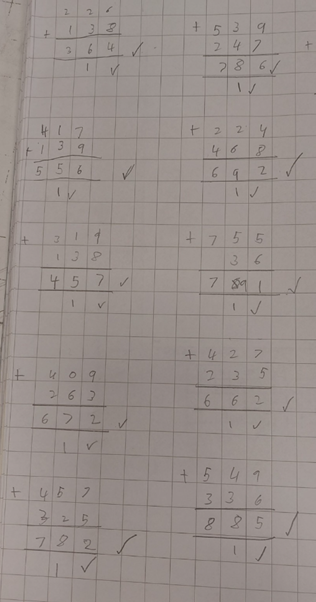 2 2 6
+ 1 3 8
3 6 4 ✓
1 ✓
+ 5 3 9
2 4 7
7 8 6 ✓
1 ✓
+
4 1 7
+ 1 3 9
5 5 6 ✓
1 ✓
+ 2 2 4
4 6 8
6 9 2 ✓
1 ✓
+ 3 1 9
1 3 8
4 5 7 ✓
1 ✓
+ 7 5 5
3 6
7 9 1 ✓
1 ✓
+ 4 0 9
2 6 3
6 7 2 ✓
1 ✓
+ 4 2 7
2 3 5
6 6 2 ✓
1 ✓
+ 4 5 7
3 2 5
7 8 2 ✓
1 ✓
+ 5 4 9
3 3 6
8 8 5 ✓
1 ✓